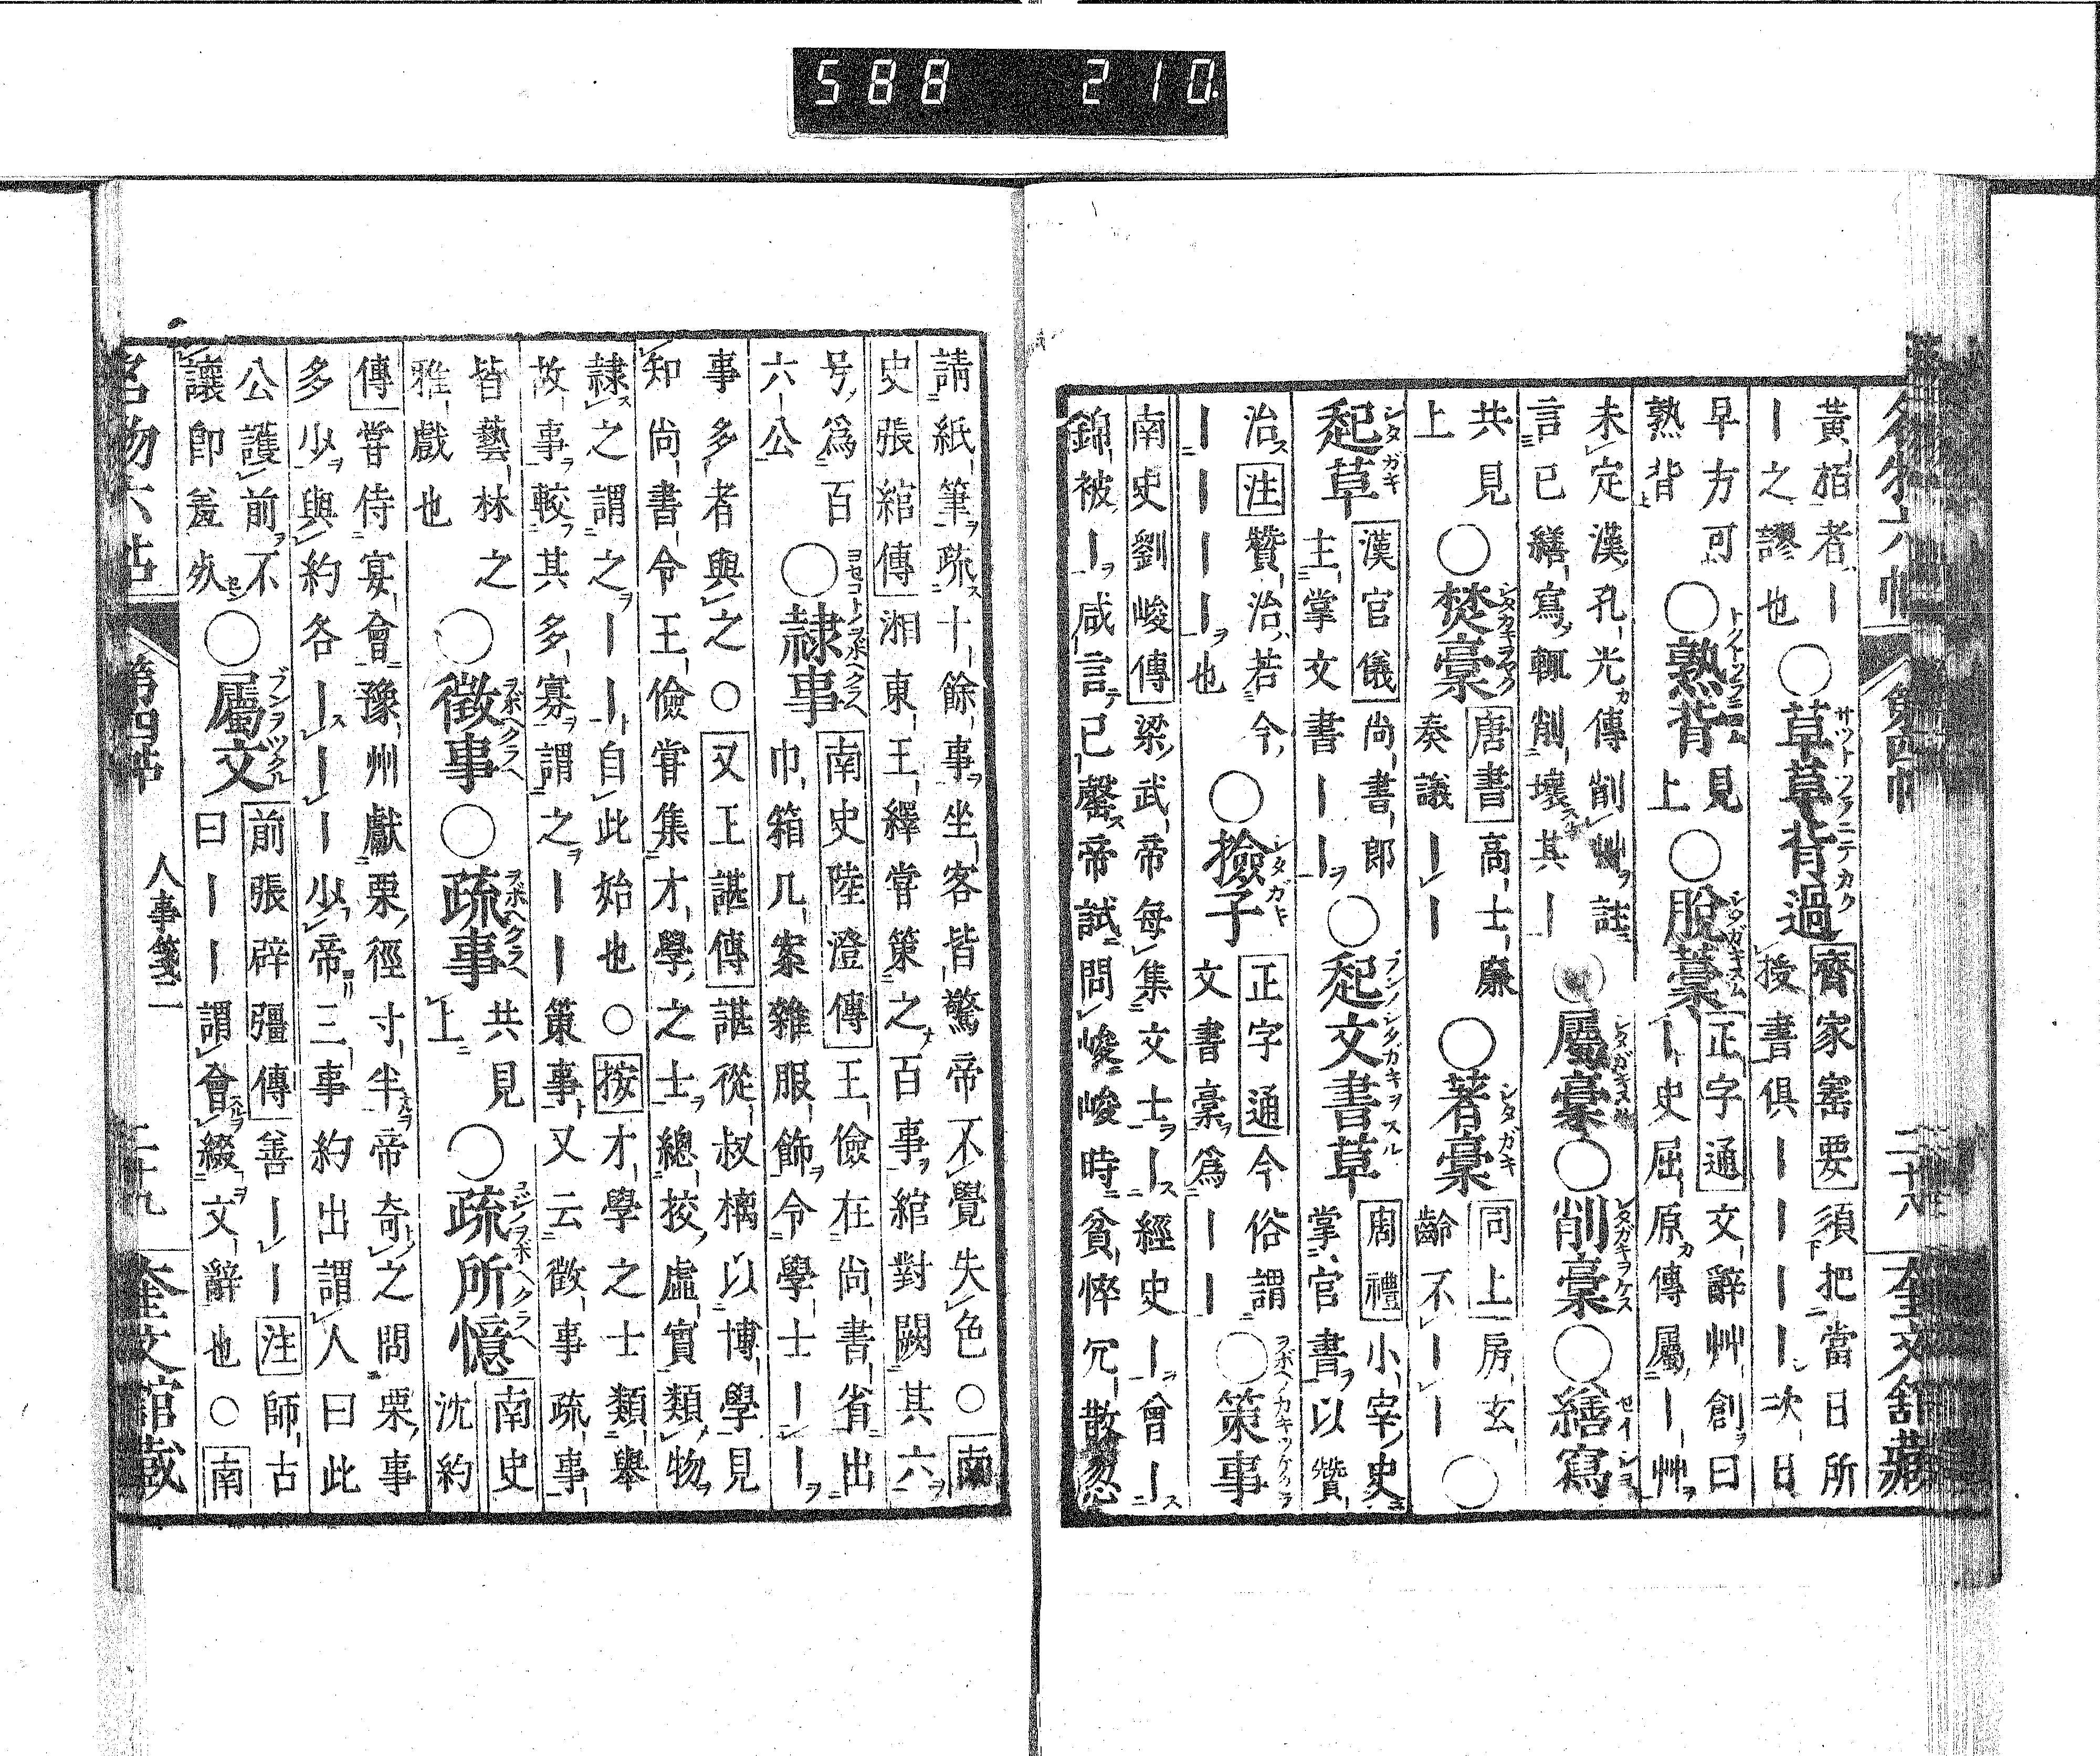 名物六帖 第四帖 二十八 奎文舘藏
黃掐者丨
丨之謬也
○草草背過
齊家寶要須把當日所
授書俱丨丨丨丨次日
早方可
熟背
○熟背
見
上
○脫藁
正字通文辭艸創曰
丨史屈原傳屬丨艸
未定漢孔光傳削艸註
言已繕寫輒削壞其丨
○屬藁○削藁○繕寫
共見
上
○焚藁
唐書高士廉
奏議丨丨
○著藁
同上房玄
齡不丨丨
○
起草
漢官儀尚書郎
主掌文書丨丨
○起文書草
周禮小宰史
掌官書以贊
治注贊治若今
丨丨丨丨也
○撿子
正字通今俗謂
文書藁爲丨丨
○策事
南史劉峻傳梁武帝每集文士丨經史丨曾丨
錦被丨咸言已罄帝試問峻峻時貧悴冗散忽
請紙筆疏十餘事坐客皆驚帝不覺失色○南
史張綰傳湘東王繹嘗策之百事綰對闕其六
号爲百
六公
○隸事
南史陸澄傳王儉在尚書省出
巾箱几案雜服飾令學士丨丨
事多者與之○又王諶傳諶從叔摛以博學見
知尚書令王儉嘗集才學之士總挍虛實類物
隸之謂之丨丨自此始也○按才學之士類舉
故事較其多寡謂之丨丨策事又云徵事疏事
皆藝林之
雅戲也
○徵事○疏事
共見
上
○疏所憶
南史
沈約
傳嘗侍宴會豫州獻栗徑寸半帝奇之問栗事
多少與約各丨丨丨少帝三事約出謂人曰此
公護前不
讓即羞死
○屬文
前張辟彊傳善丨丨注師古
曰丨丨謂會綴文辭也○南
名物六帖 第四帖 人事箋二 二十九 奎文舘藏
588 210